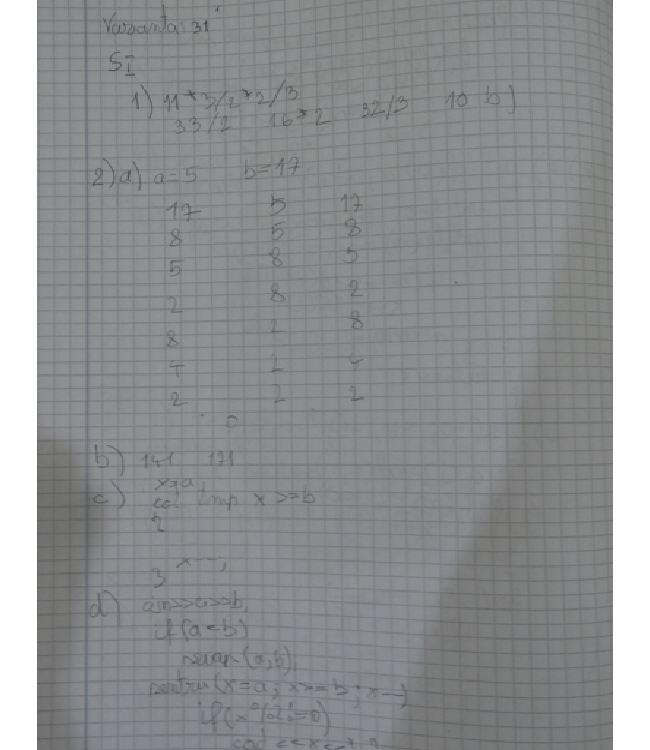 Varianta 31
SI
1) 11*3/2*2/3
33/2 16*2 32/3 10 b)
2) a) a=5 b=17
17 5 17
8 5 8
5 8 5
2 8 2
8 2 8
4 2 4
2 2 2
0
b) 141 171
x=a;
c) cat timp x>=b
{
x--;
}
d) cin>>a>>b;
if(a<b)
swap(a,b);
pentru(x=a; x>=b; x--)
if(x%2!=0)
cout<<x<<